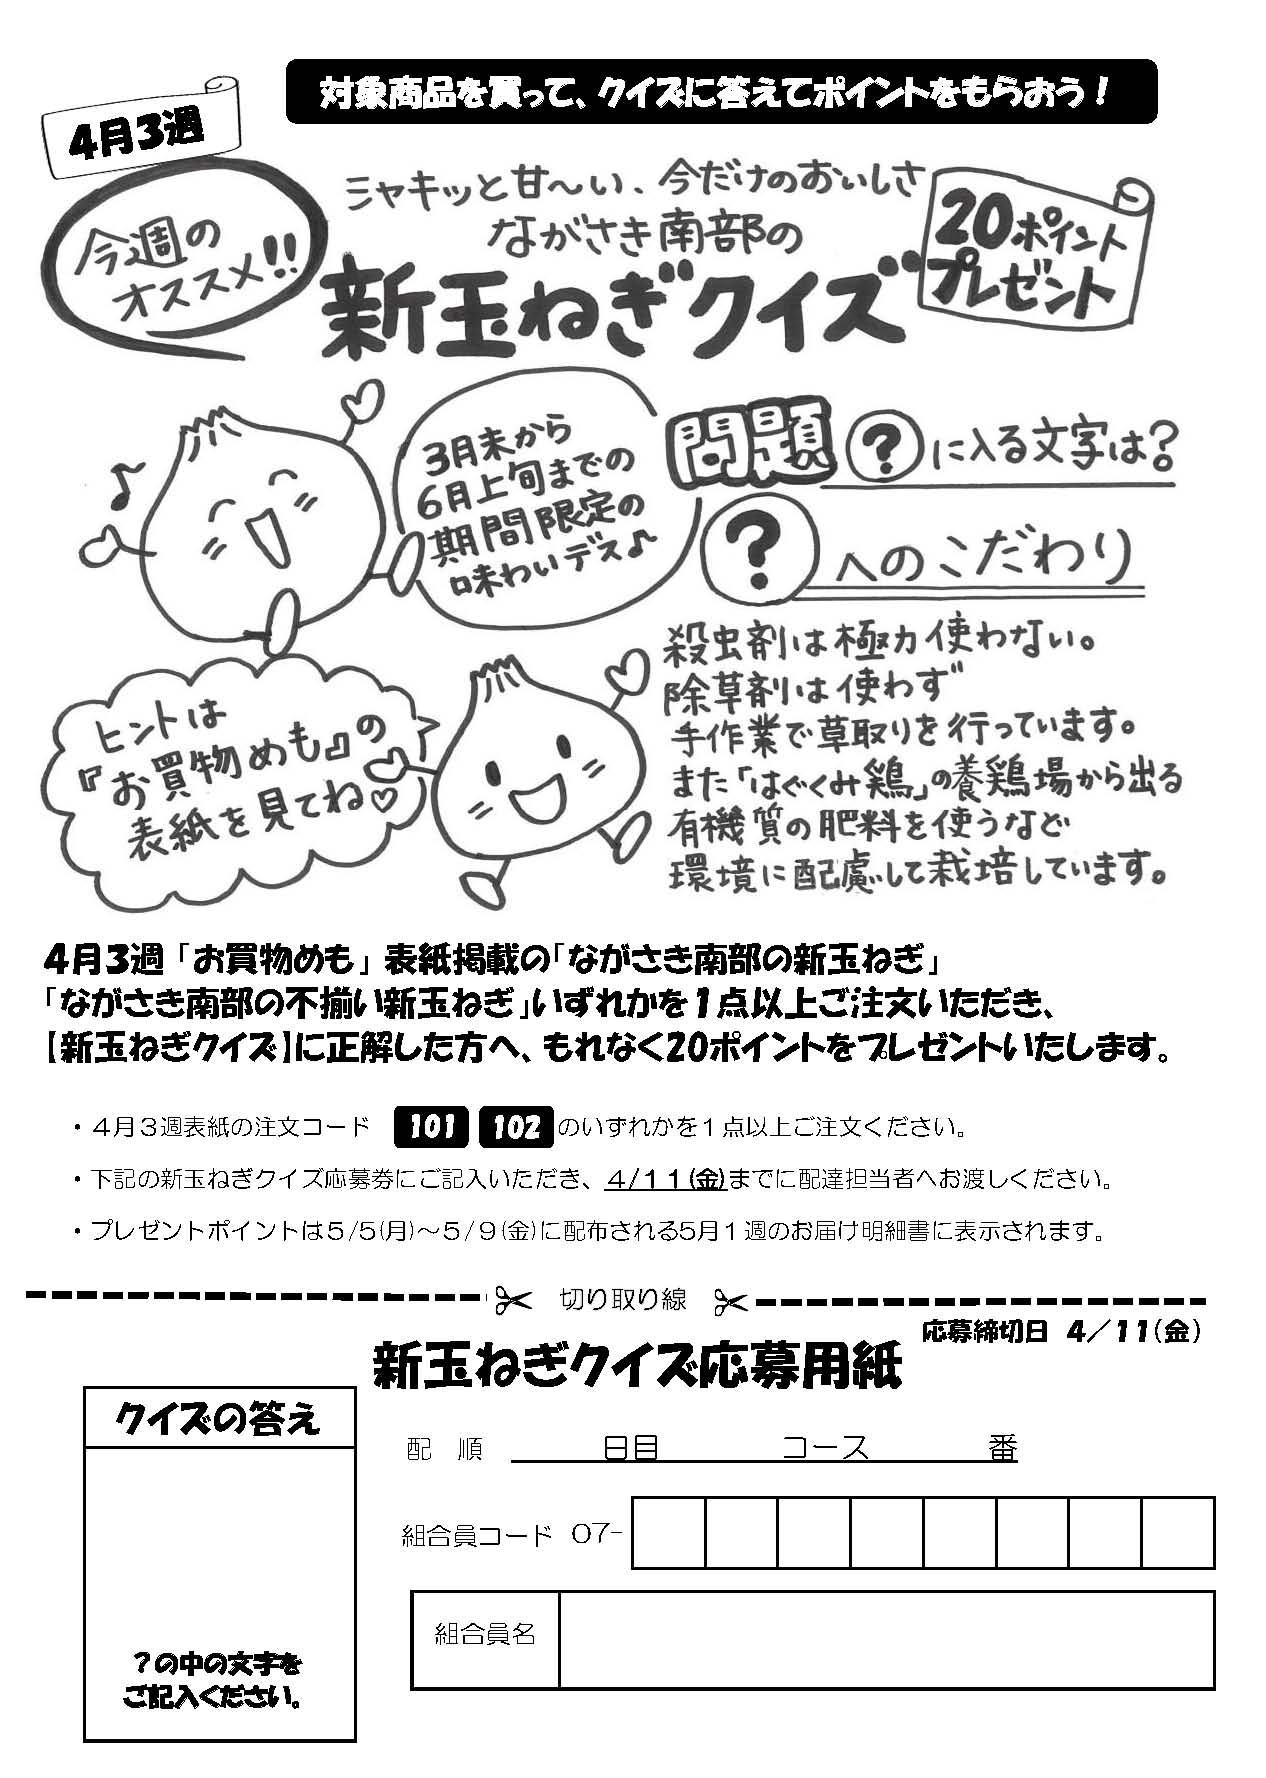 対象商品を買って、クイズに答えてポイントをもらおう！
4月3週
今週の
オススメ!!
シャキッと甘～い、今だけのおいしさ
ながさき南部の
新玉ねぎクイズ
20ポイント
プレゼント
3月末から
6月上旬までの
期間限定の
味わいデス♪
問題 ? に入る文字は?
? へのこだわり
殺虫剤は極力使わない。
除草剤は使わず
手作業で草取りを行っています。
また「はぐくみ鶏」の養鶏場から出る
有機質の肥料を使うなど
環境に配慮して栽培しています。
ヒントは
『お買物めも』の
表紙を見てね♡
4月3週「お買物めも」表紙掲載の「ながさき南部の新玉ねぎ」
「ながさき南部の不揃い新玉ねぎ」いずれかを1点以上ご注文いただき、
【新玉ねぎクイズ】に正解した方へ、もれなく20ポイントをプレゼントいたします。
・４月３週表紙の注文コード 101 102 のいずれかを１点以上ご注文ください。
・下記の新玉ねぎクイズ応募券にご記入いただき、４/１１(金)までに配達担当者へお渡しください。
・プレゼントポイントは５/５(月)～５/９(金)に配布される5月１週のお届け明細書に表示されます。
✂ 切り取り線 ✂
応募締切日 4／11(金)
新玉ねぎクイズ応募用紙
クイズの答え
？の中の文字を
ご記入ください。
配 順 日目 コース 番
組合員コード 07-
組合員名